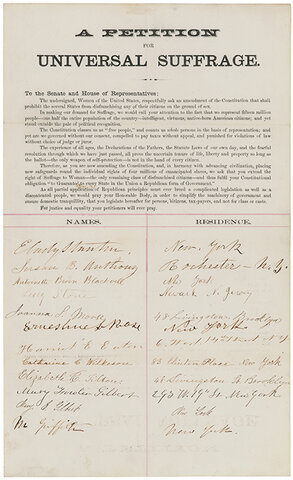 A PETITION
FOR
UNIVERSAL SUFFRAGE.
To the Senate and House of Representatives:
The undersigned, Women of the United States, respectfully ask an amendment of the Constitution that shall
prohibit the several States from disfranchising any of their citizens on the ground of sex.
In making our demand for Suffrage, we would call your attention to the fact that we represent fifteen million
people—one half the entire population of the country—intelligent, virtuous, native-born American citizens; and yet
stand outside the pale of political recognition.
The Constitution classes us as "free people," and counts us whole persons in the basis of representation; and
yet are we governed without our consent, compelled to pay taxes without appeal, and punished for violations of law
without choice of judge or juror.
The experience of all ages, the Declarations of the Fathers, the Statute Laws of our own day, and the fearful
revolution through which we have just passed, all prove the uncertain tenure of life, liberty and property so long as
the ballot—the only weapon of self-protection—is not in the hand of every citizen.
Therefore, as you are now amending the Constitution, and, in harmony with advancing civilization, placing
new safeguards round the individual rights of four millions of emancipated slaves, we ask that you extend the
right of Suffrage to Woman—the only remaining class of disfranchised citizens—and thus fulfil your Constitutional
obligation "to Guarantee to every State in the Union a Republican form of Government."
As all partial application of Republican principles must ever breed a complicated legislation as well as a
discontented people, we would pray your Honorable Body, in order to simplify the machinery of government and
ensure domestic tranquillity, that you legislate hereafter for persons, citizens, tax-payers, and not for class or caste.
For justice and equality your petitioners will ever pray.
NAMES. RESIDENCE.
E Cady Stanton New York
Susan B. Anthony Rochester - N.Y.
Antoinette Brown Blackwell New York
Lucy Stone Newark N. Jersey
Joanna S. Morse 48 Livingston Brooklyn
Ernestine L Rose New York
Harriet E Eaton 6 West 14th Street N.Y
Catharine C Wilkeson 83 Clinton Place New York
Elizabeth R. Tilton 48 Livingston St Brooklyn
Mary Fowler Gilbert 293 W. 19th St New York
Gilbert New York
M Griffith New York